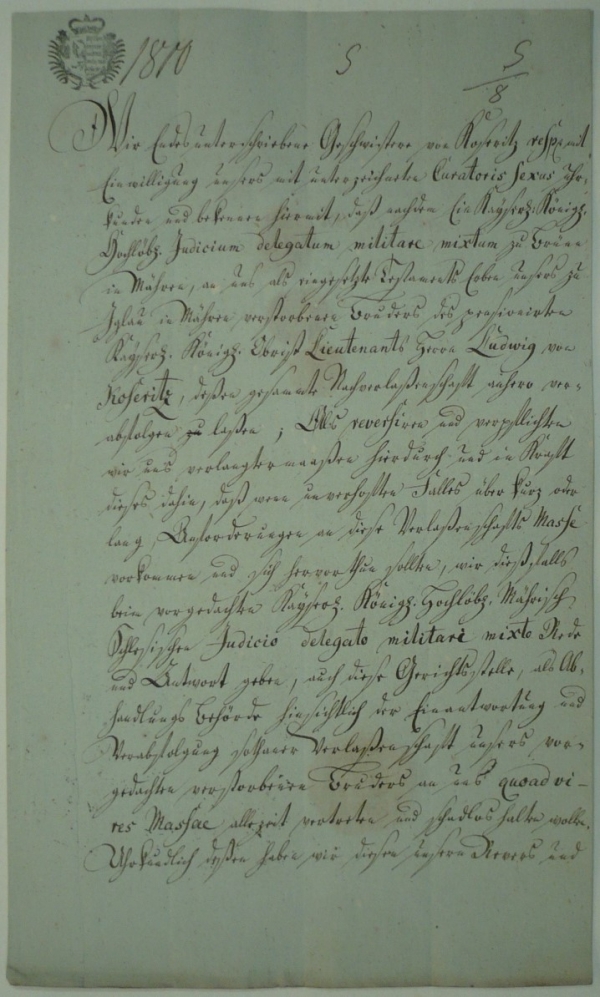 1810 5 5/8
Wir Endesunterschriebene Geschwistere von Koseritz resp: mit
Einwilligung unsers mit unterzeichneten Curatoris sexus uhr-
kunden und bekennen hiermit, daß nachdem Ein Kayserl. Königl.
Hochlöbl. Judicium delegatum militare mixtum zu Brünn
in Mähren, an uns als eingesetzte Testaments Erben unsers zu
Iglau in Mähren verstorbenen Bruders des pensionirten
Kayserl. Königl. Obrist Lieutenants Herrn Ludwig von
Koseritz, deßen gesammte Nachverlaßenschaft anhero ver-
abfolgen zu laßen; Als reversiren und verpflichten
wir uns verlangtermaaßen hierdurch und in Kraft
dieses dahin, daß wenn unverhofften Falles über kurz oder
lang, Anforderungen an diese Verlaßenschafts Masse
vorkommen und sich hervorthun sollten, wir dießfalls
beim vorgedachten Kayserl. Königl. Hochlöbl. Mährisch
Schlesischen Judicio delegato militari mixto Rede
und Antwort geben, auch diese Gerichtsstelle, als Ab-
handlungs Behörde hinsichtlich der Einantwortung und
Verabfolgung sothaner Verlaßenschaft unsers vor-
gedachten verstorbenen Bruders an uns quoad vi-
res Massae allezeit vertreten und schadlos halten wollen.
Uhrkundlich deßen haben wir diesen unsern Revers und